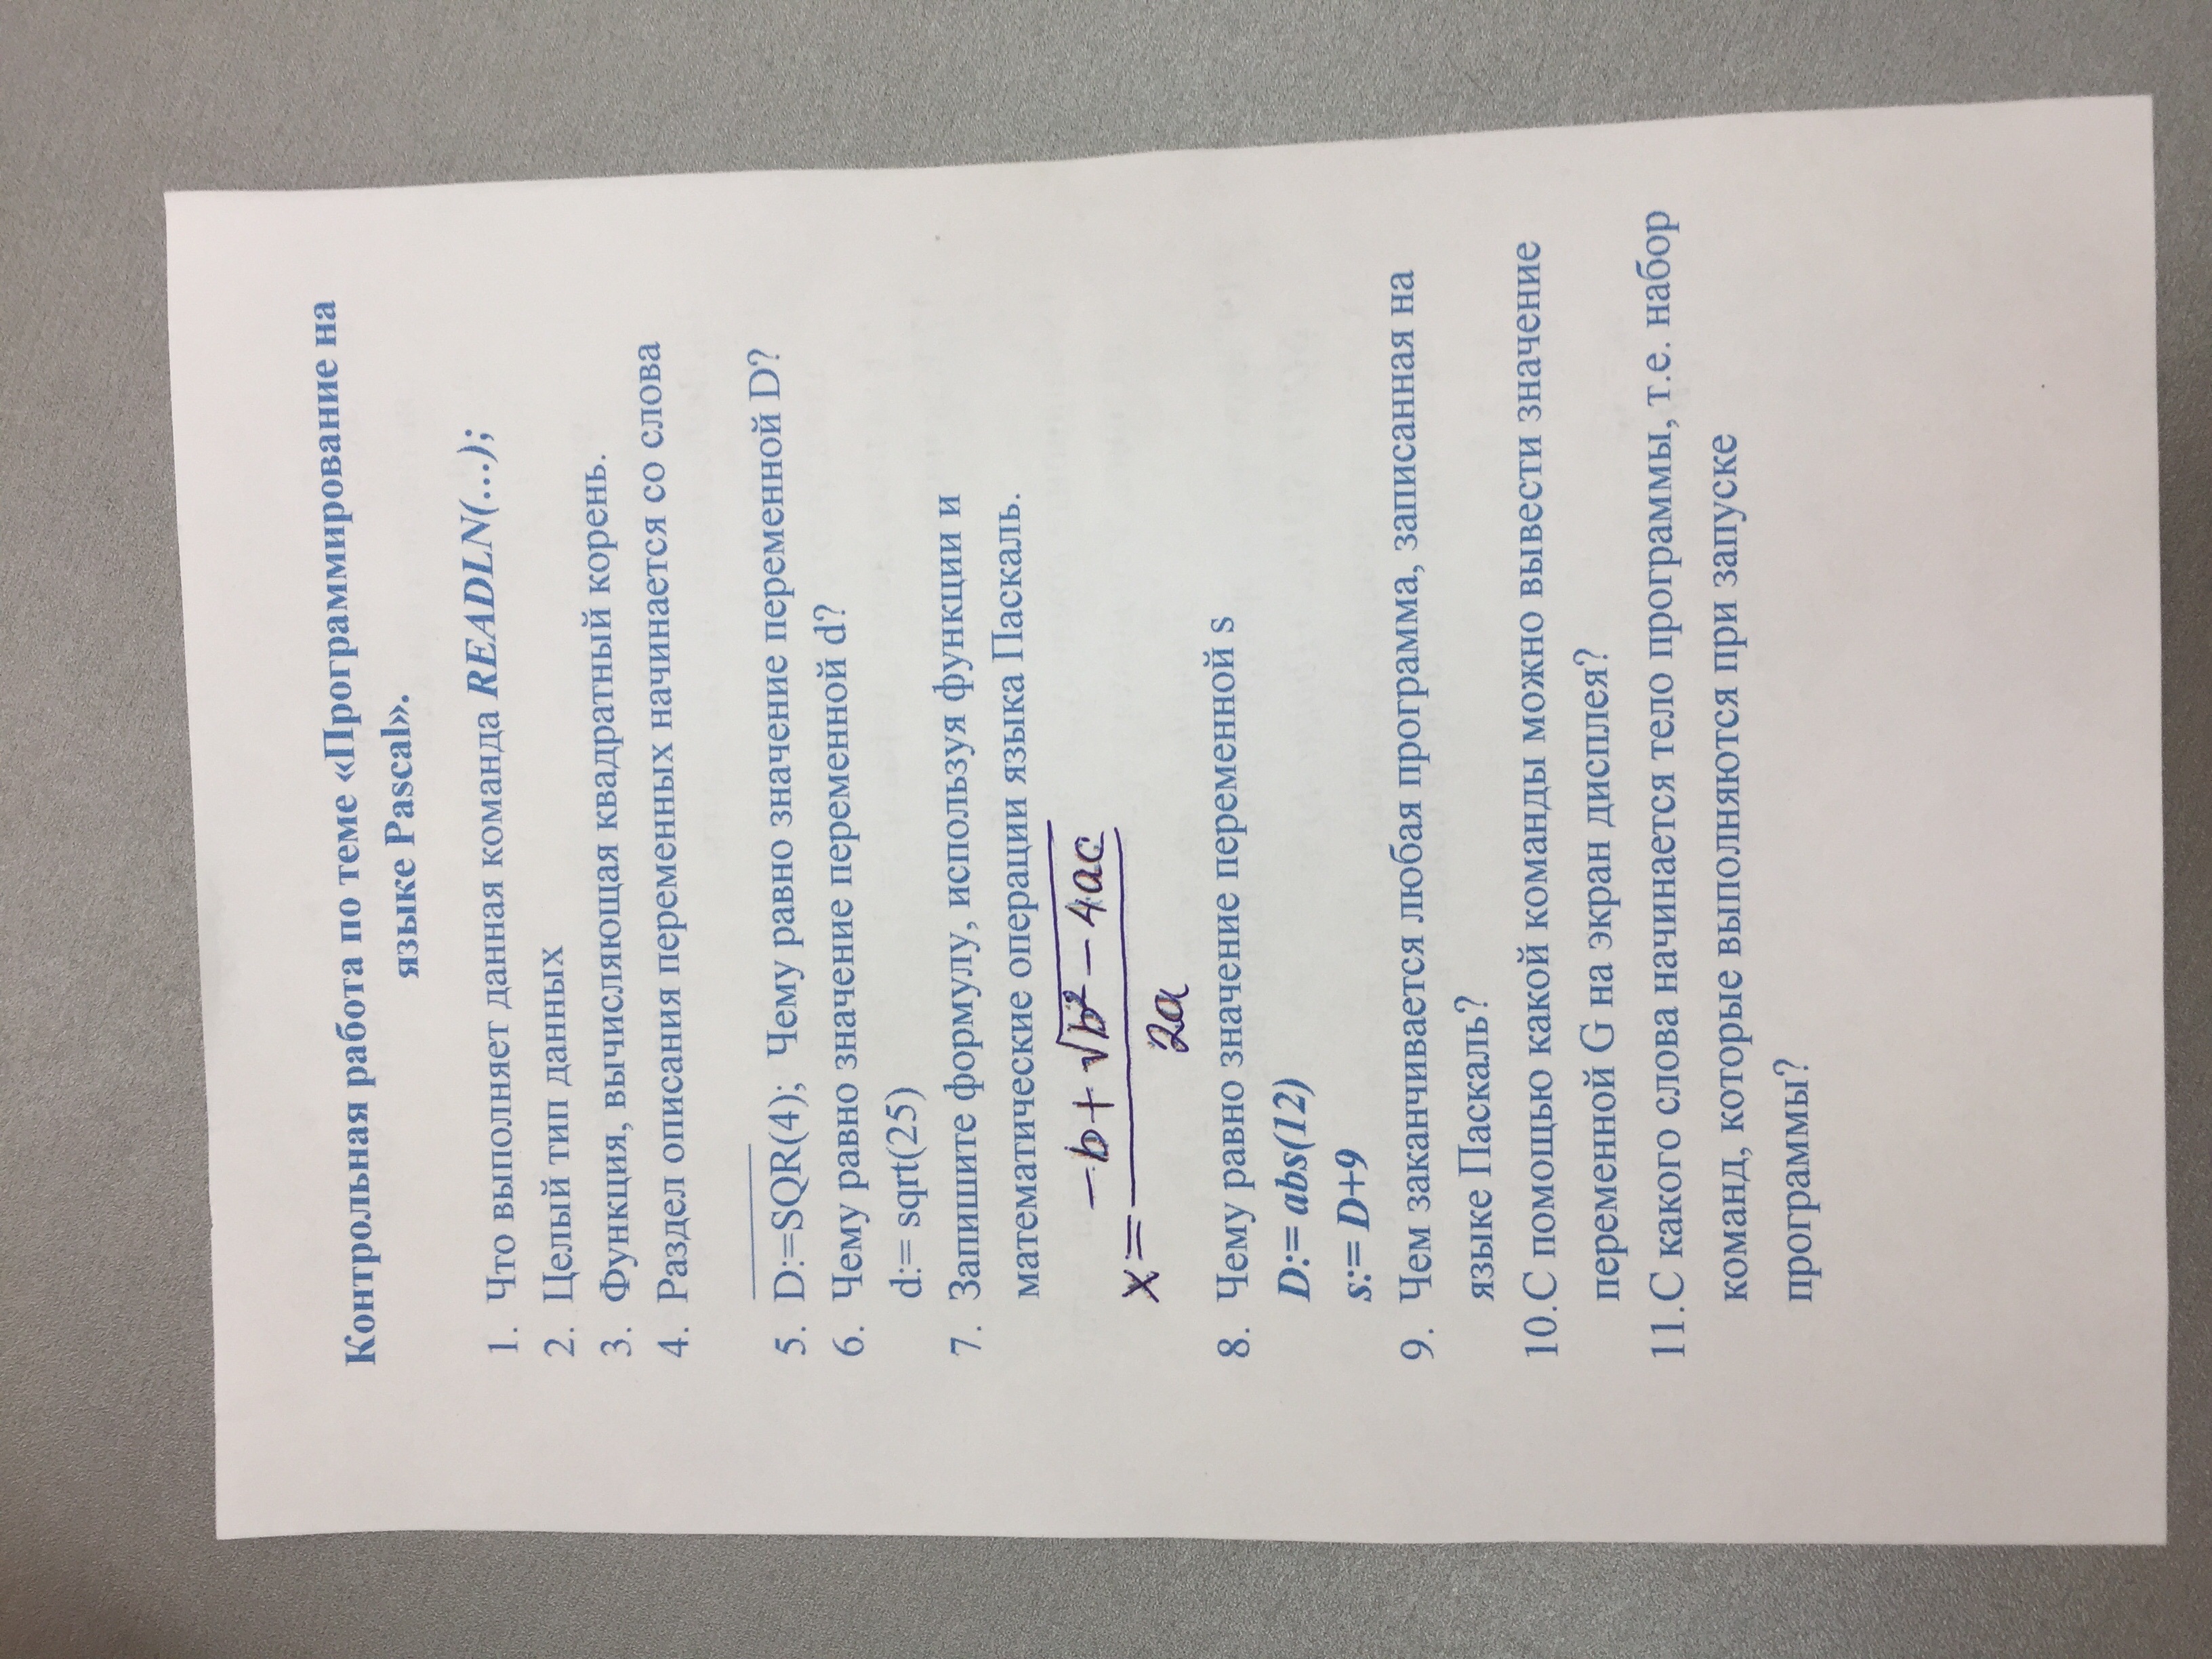 Контрольная работа по теме «Программирование на
языке Pascal».
1. Что выполняет данная команда READLN(…);
2. Целый тип данных
3. Функция, вычисляющая квадратный корень.
4. Раздел описания переменных начинается со слова
5. D:=SQR(4); Чему равно значение переменной D?
6. Чему равно значение переменной d?
d:= sqrt(25)
7. Запишите формулу, используя функции и
математические операции языка Паскаль.
x:= (-b+√(b²-4ac))/2a
8. Чему равно значение переменной s
D:= abs(12)
s:= D+9
9. Чем заканчивается любая программа, записанная на
языке Паскаль?
10.С помощью какой команды можно вывести значение
переменной G на экран дисплея?
11.С какого слова начинается тело программы, т.е. набор
команд, которые выполняются при запуске
программы?